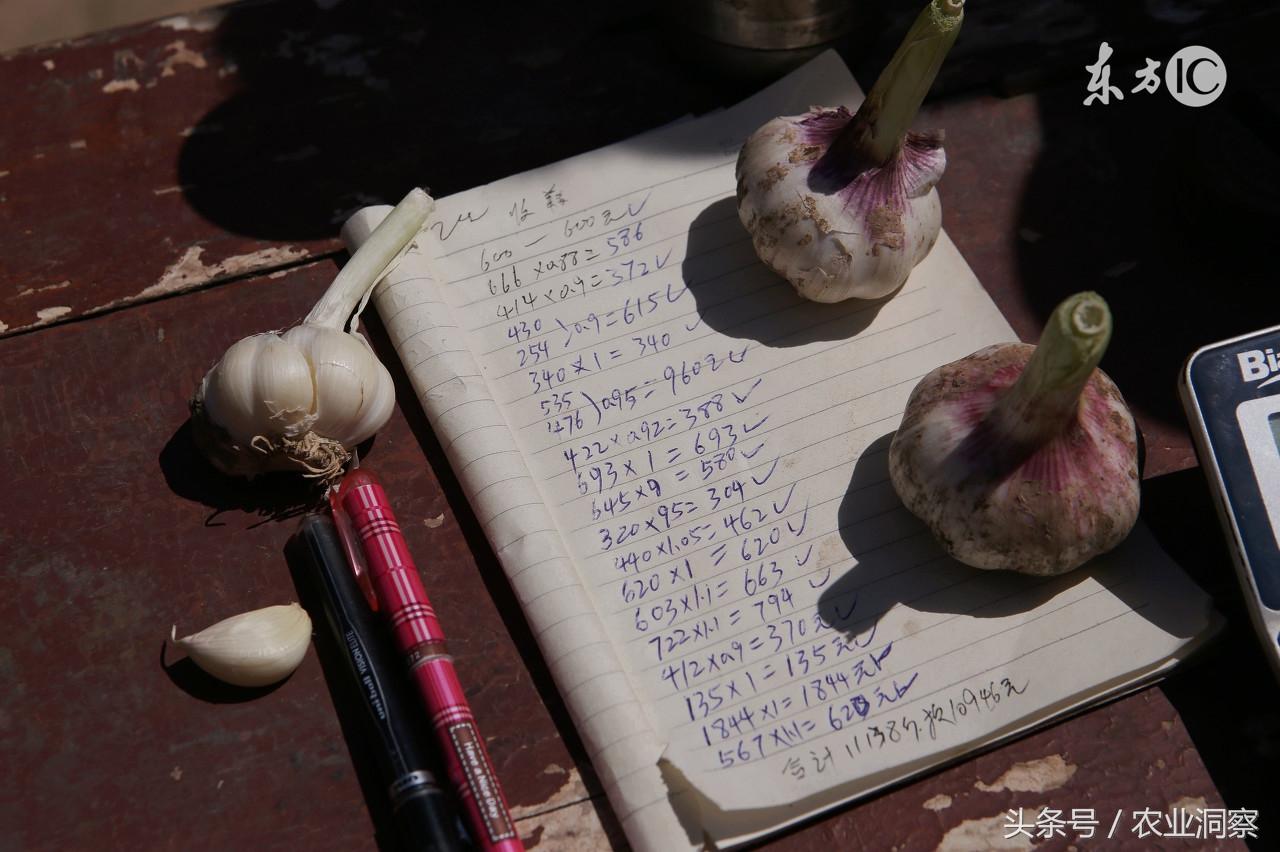 东方IC
收蒜
600 — 600元✓
666×0.88=586
414×0.9=372✓
430
254 )0.9=615✓
340×1=340 ✓
535
476 )0.95=960元✓
422×0.92=388✓
693×1=693✓
645×9=580✓
320×95=304✓
440×1.05=462✓
620×1=620✓
603×1.1=663✓
722×1.1=794 ✓
412×0.9=370元✓
135×1=135元✓
1844×1=1844元✓
567×1.1=620元✓
合计11138斤.款10946元
uni-ball VISION ELITE
Have a Nice Day
头条号 / 农业洞察